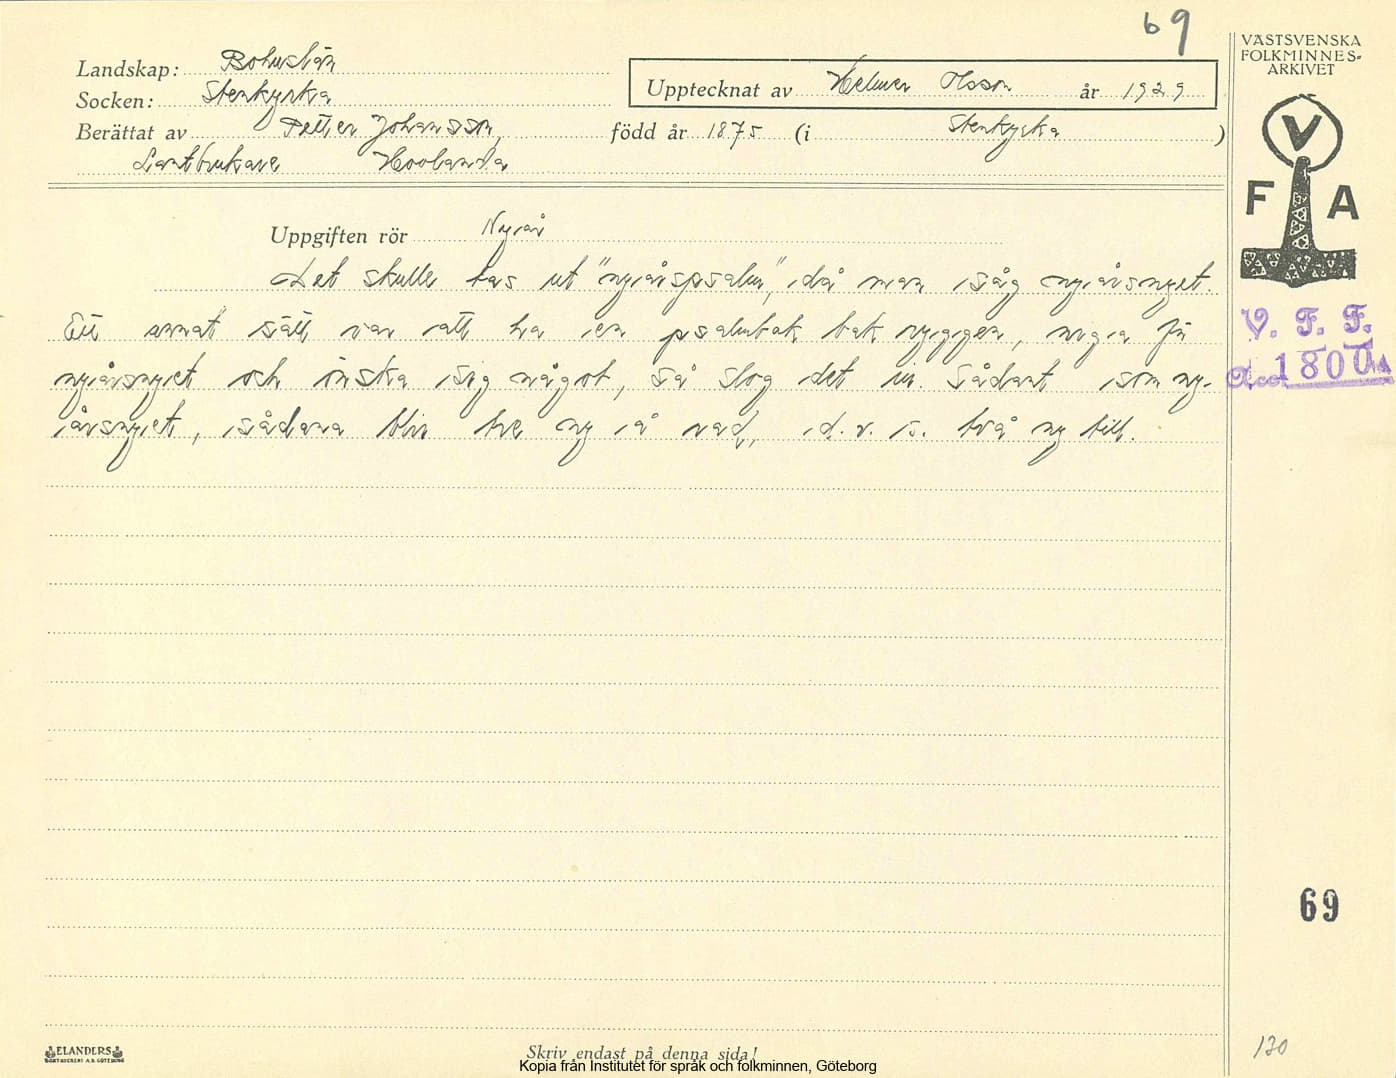 69
VÄSTSVENSKA
FOLKMINNES-
ARKIVET
Landskap: Bohuslän
Socken: Stenkyrka
Upptecknat av Helmer Olsson år 1929
Berättat av Petter Johansson, född år 1875 (i Stenkyrka )
Lantbrukare Hovlanda
V
F A
Uppgiften rör Nyår
Det skulle tas ut "nyårspsalm", då man såg nyårsnyet.
Ett annat sätt var att ha en psalmbok bak ryggen, niga för
nyårsnyet och önska sig något, så slog det in. Sådant som ny-
årsnyet, sådana blir tre ny å rad, d.v.s. två ny till.
V. F. F.
Acc. 1800
69
130
ELANDERS
BOKTRYCKERI A.B. GÖTEBORG
Skriv endast på denna sida!
Kopia från Institutet för språk och folkminnen, Göteborg